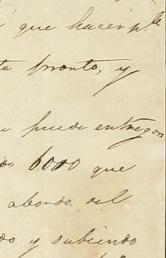 que hacer p.le
ta pronto, y
puede entregar
dos 6000 que
abordo del
do y subiendo